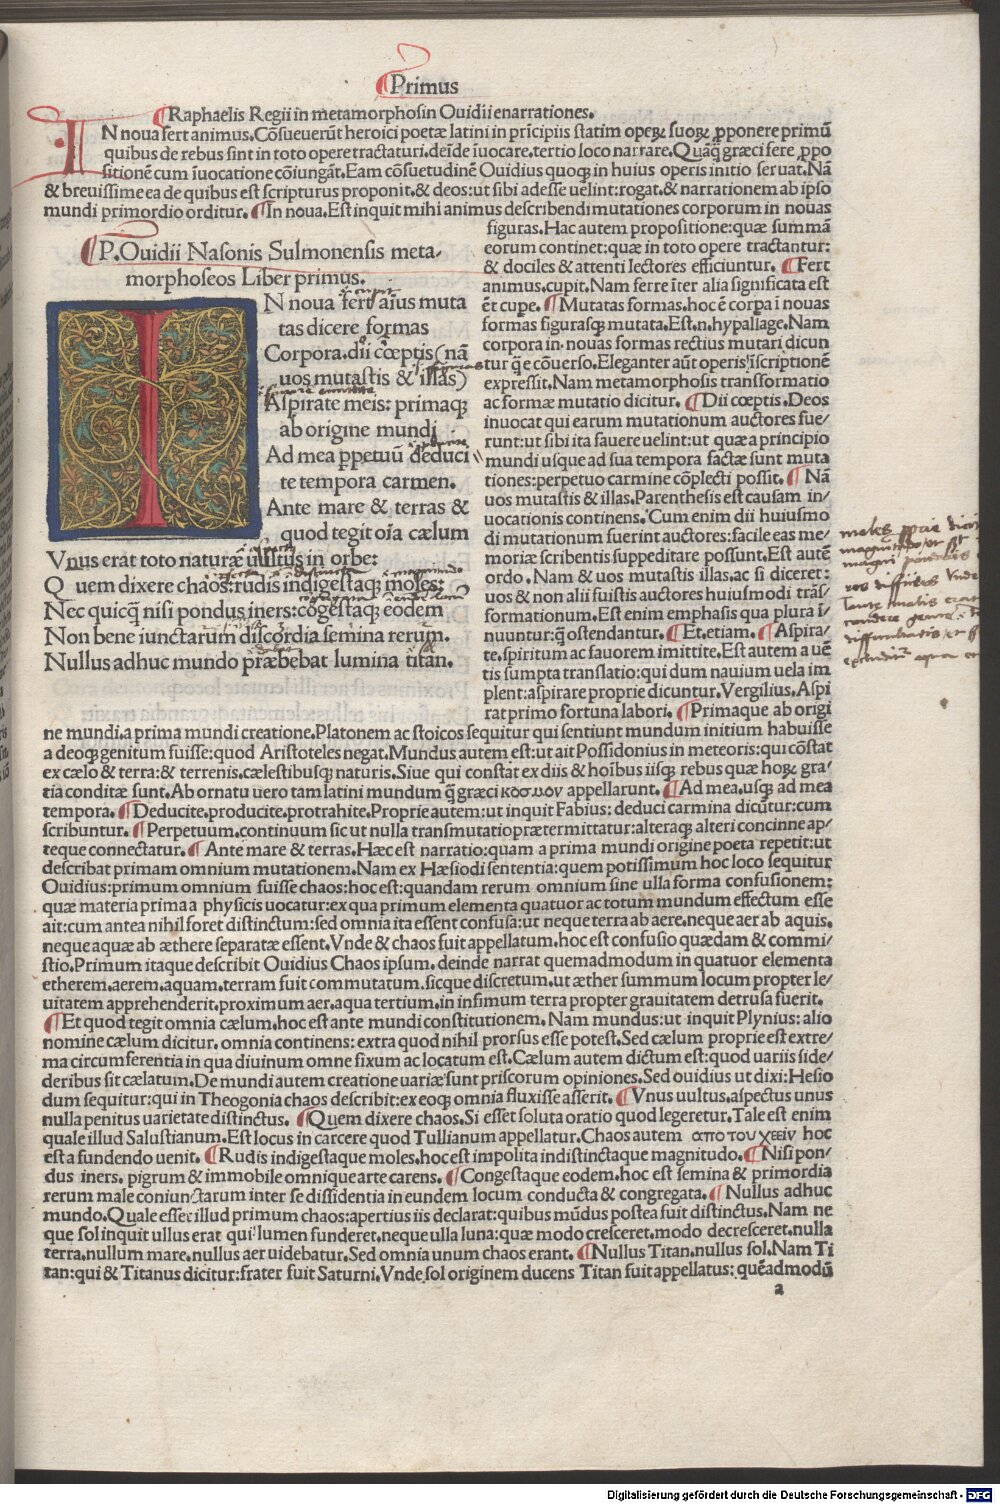 ¶Primus
¶Raphaelis Regii in metamorphosin Ouidii enarrationes.
IN noua fert animus. Cõsueuerũt heroici poetæ latini in prĩcipiis statim operꝝ suoꝝ ꝓponere primũ
quibus de rebus sint in toto opere tractaturi. deĩde ĩuocare. tertio loco narrare. Quãꝗ̃ græci fere ꝓpo
sitionẽ cum ĩuocatione cõiungãt. Eam cõsuetudinẽ Ouidius quoqꝫ in huius operis initio seruat. Nã
& breuissime ea de quibus est scripturus proponit. & deos: ut sibi adesse uelint: rogat. & narrationem ab ipso
mundi primordio orditur. ¶In noua. Est inquit mihi animus describendi mutationes corporum in nouas
¶P. Ouidii Nasonis Sulmonensis meta/
morphoseos Liber primus.
IN noua fert aĩus muta
tas dicere formas
Corpora. dii cœptis (nã
uos mutastis & illas)
Aspirate meis: primaqꝫ
ab origine mundi
Ad mea ꝑpetuũ deduci
te tempora carmen.
Ante mare & terras &
quod tegit oĩa cælum
Vnus erat toto naturæ uultus in orbe:
Quem dixere chaos: rudis indigestaqꝫ moles:
Nec quicꝗ̃ nisi pondus iners: cõgestaqꝫ eodem
Non bene iunctarum discordia semina rerum.
Nullus adhuc mundo præbebat lumina titan.
figuras. Hac autem propositione: quæ summã
eorum continet: quæ in toto opere tractantur:
& dociles & attenti lectores efficiuntur. ¶Fert
animus. cupit. Nam ferre ĩter alia significata est
ẽt cupe. ¶Mutatas formas. hoc ẽ corpa ĩ nouas
formas figurasqꝫ mutata. Est. n. hypallage. Nam
corpora in nouas formas rectius mutari dicun
tur ꝗ̃ e cõuerso. Eleganter aũt operis ĩscriptionẽ
expressit. Nam metamorphosis transformatio
ac formæ mutatio dicitur. ¶Dii cœptis. Deos
inuocat qui earum mutationum auctores fue/
runt: ut sibi ita fauere uelint: ut quæ a principio
mundi usque ad sua tempora factæ sunt muta
tiones: perpetuo carmine cõplecti possit. ¶Nã
uos mutastis & illas. Parenthesis est causam in/
uocationis continens. Cum enim dii huiusmo
di mutationum fuerint auctores: facile eas me/
moriæ scribentis suppeditare possunt. Est autẽ
ordo. Nam & uos mutastis illas. ac si diceret:
uos & non alii fuistis auctores huiusmodi trãs/
formationum. Est enim emphasis qua plura ĩ/
nuuntur: ꝗ̃ ostendantur. ¶Et. etiam. ¶Aspira/
te. spiritum ac fauorem imittite. Est autem a uẽ
tis sumpta translatio: qui dum nauium uela im
plent: aspirare proprie dicuntur. Vergilius. Aspi
rat primo fortuna labori. ¶Primaque ab origi
ne mundi. a prima mundi creatione. Platonem ac stoicos sequitur qui sentiunt mundum initium habuisse
a deoqꝫ genitum fuisse: quod Aristoteles negat. Mundus autem est: ut ait Possidonius in meteoris: qui cõstat
ex cælo & terra: & terrenis. cælestibusqꝫ naturis. Siue qui constat ex diis & hoĩbus iisqꝫ rebus quæ hoꝝ gra/
tia conditæ sunt. Ab ornatu uero tam latini mundum ꝗ̃ græci κοσμον appellarunt. ¶Ad mea. usqꝫ ad mea
tempora. ¶Deducite. producite. protrahite. Proprie autem: ut inquit Fabius: deduci carmina dicũtur: cum
scribuntur. ¶Perpetuum. continuum sic ut nulla transmutatio prætermittatur: alteraqꝫ alteri concinne ap/
teque connectatur. ¶Ante mare & terras. Hæc est narratio: quam a prima mundi origine poeta repetit: ut
describat primam omnium mutationem. Nam ex Hæsiodi sententia: quem potissimum hoc loco sequitur
Ouidius: primum omnium fuisse chaos: hoc est: quandam rerum omnium sine ulla forma confusionem:
quæ materia prima a physicis uocatur: ex qua primum elementa quatuor ac totum mundum effectum esse
ait: cum antea nihil foret distinctum: sed omnia ita essent confusa: ut neque terra ab aere. neque aer ab aquis.
neque aquæ ab æthere separatæ essent. Vnde & chaos fuit appellatum. hoc est confusio quædam & commi/
stio. Primum itaque describit Ouidius Chaos ipsum. deinde narrat quemadmodum in quatuor elementa
etherem. aerem. aquam. terram fuit commutatum. sicque discretum. ut æther summum locum propter le/
uitatem apprehenderit. proximum aer. aqua tertium. in infimum terra propter grauitatem detrusa fuerit.
¶Et quod tegit omnia cælum. hoc est ante mundi constitutionem. Nam mundus: ut inquit Plynius: alio
nomine cælum dicitur. omnia continens: extra quod nihil prorsus esse potest. Sed cælum proprie est extre/
ma circumferentia in qua diuinum omne fixum ac locatum est. Cælum autem dictum est: quod uariis side/
deribus sit cælatum. De mundi autem creatione uariæ sunt priscorum opiniones. Sed ouidius ut dixi: Hesio
dum sequitur: qui in Theogonia chaos describit: ex eoqꝫ omnia fluxisse asserit. ¶Vnus uultus. aspectus unus
nulla penitus uarietate distinctus. ¶Quem dixere chaos. Si esset soluta oratio quod legeretur. Tale est enim
quale illud Salustianum. Est locus in carcere quod Tullianum appellatur. Chaos autem απο του χεειν hoc
est a fundendo uenit. ¶Rudis indigestaque moles. hoc est impolita indistinctaque magnitudo. ¶Nisi pon/
dus iners. pigrum & immobile omnique arte carens. ¶Congestaque eodem. hoc est semina & primordia
rerum male coniunctarum inter se dissidentia in eundem locum conducta & congregata. ¶Nullus adhuc
mundo. Quale esset illud primum chaos: apertius iis declarat: quibus mũdus postea fuit distinctus. Nam ne
que sol inquit ullus erat qui lumen funderet. neque ulla luna: quæ modo cresceret. modo decresceret. nulla
terra. nullum mare. nullus aer uidebatur. Sed omnia unum chaos erant. ¶Nullus Titan. nullus sol. Nam Ti
tan: qui & Titanus dicitur: frater fuit Saturni. Vnde sol originem ducens Titan fuit appellatus: quẽadmodũ
a
Digitalisierung gefördert durch die Deutsche Forschungsgemeinschaft - DFG